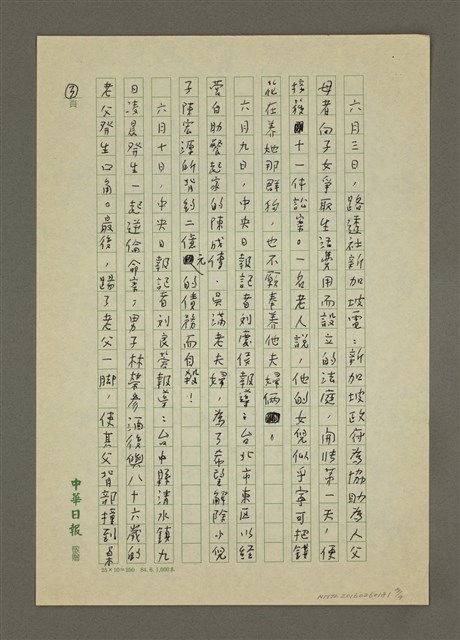 六月三日，路透社新加坡電：新加坡政府為協助為人父
母者向子女爭取生活費用而設立的法庭，開張第一天，便
接獲十一件訟案。一名老人說，他的女兒似乎寧可把錢
花在養她那群狗，也不願奉養他夫婦倆。
六月九日，中央日報記者刘慶侯報導：台北市東区以經
營自助餐起家的陳成傳、吳滿老夫婦，為了希望解除小兒
子陳宏源所背約二億元的債務而自殺！
六月十日，中央日報記者刘良荣報導：台中縣清水鎮九
日凌晨發生一起逆倫命案，男子林榮彥酒後與八十六歲的
老父發生口角。最後，踢了老父一脚，使其父背部撞到桌
③
頁
中華日報
25×10=250 84.6.1,000本